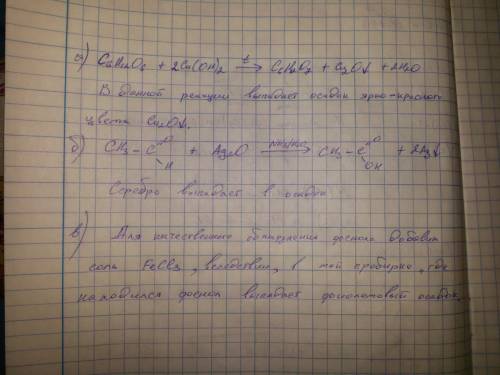 а) C6H12O6 + 2Cu(OH)2 t→ C6H12O7 + Cu2O↓ + 2H2O
В данной реакции выпадает осадок ярко-красного
цвета Cu2O↓.
б) CH3 – C =O H + Ag2O NH3/H2O→ CH3 – C =O OH + 2Ag↓
Серебро выпадает в осадок
в) Для качественного обнаружения фенола добавим
соль FeCl3, вследствие, в той пробирке, где
находился фенол выпадает фиолетовый осадок.